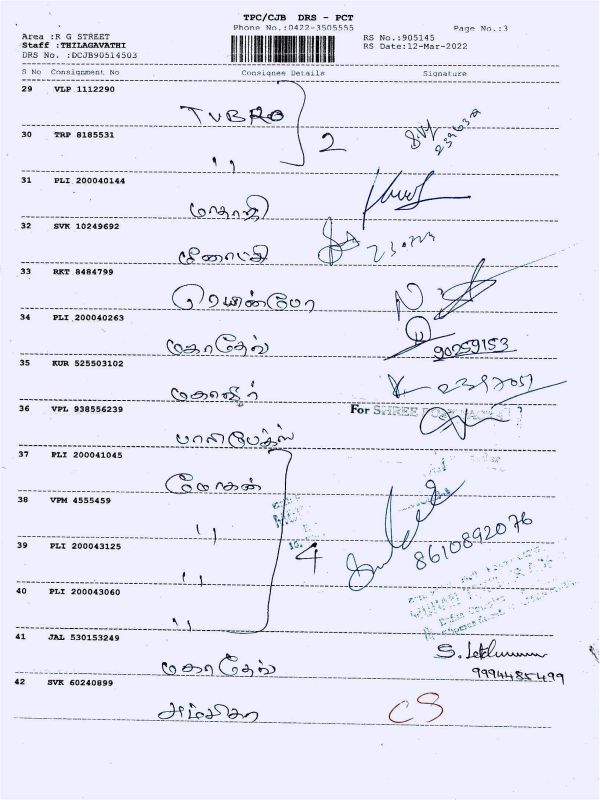 TPC/CJB DRS - PCT
Phone No.:0422-3505555
Page No.:3
Area :R G STREET
RS No.:905145
Staff :THILAGAVATHI
RS Date:12-Mar-2022
DRS No. :DCJB90514503
S No Consignment No Consignee Details Signature
29 VLP 1112290
TUBRO
30 TRP 8185531
2
,,
31 PLI 200040144
மாதாஜி
32 SVK 10249692
மீனாட்சி
33 RKT 8484799
ரெயின்போ
34 PLI 200040263
மகாதேவ் 90259153
35 KUR 525503102
மகாவீர்
36 VPL 938556239
For SHREE
பாலிபேக்ஸ்
37 PLI 200041045
மோகன்
38 VPM 4555459
,,
39 PLI 200043125
4 8610892076
,,
40 PLI 200043060
,,
41 JAL 530153249
மகாதேவ் 9994485499
42 SVK 60240899
அம்பிகா CS